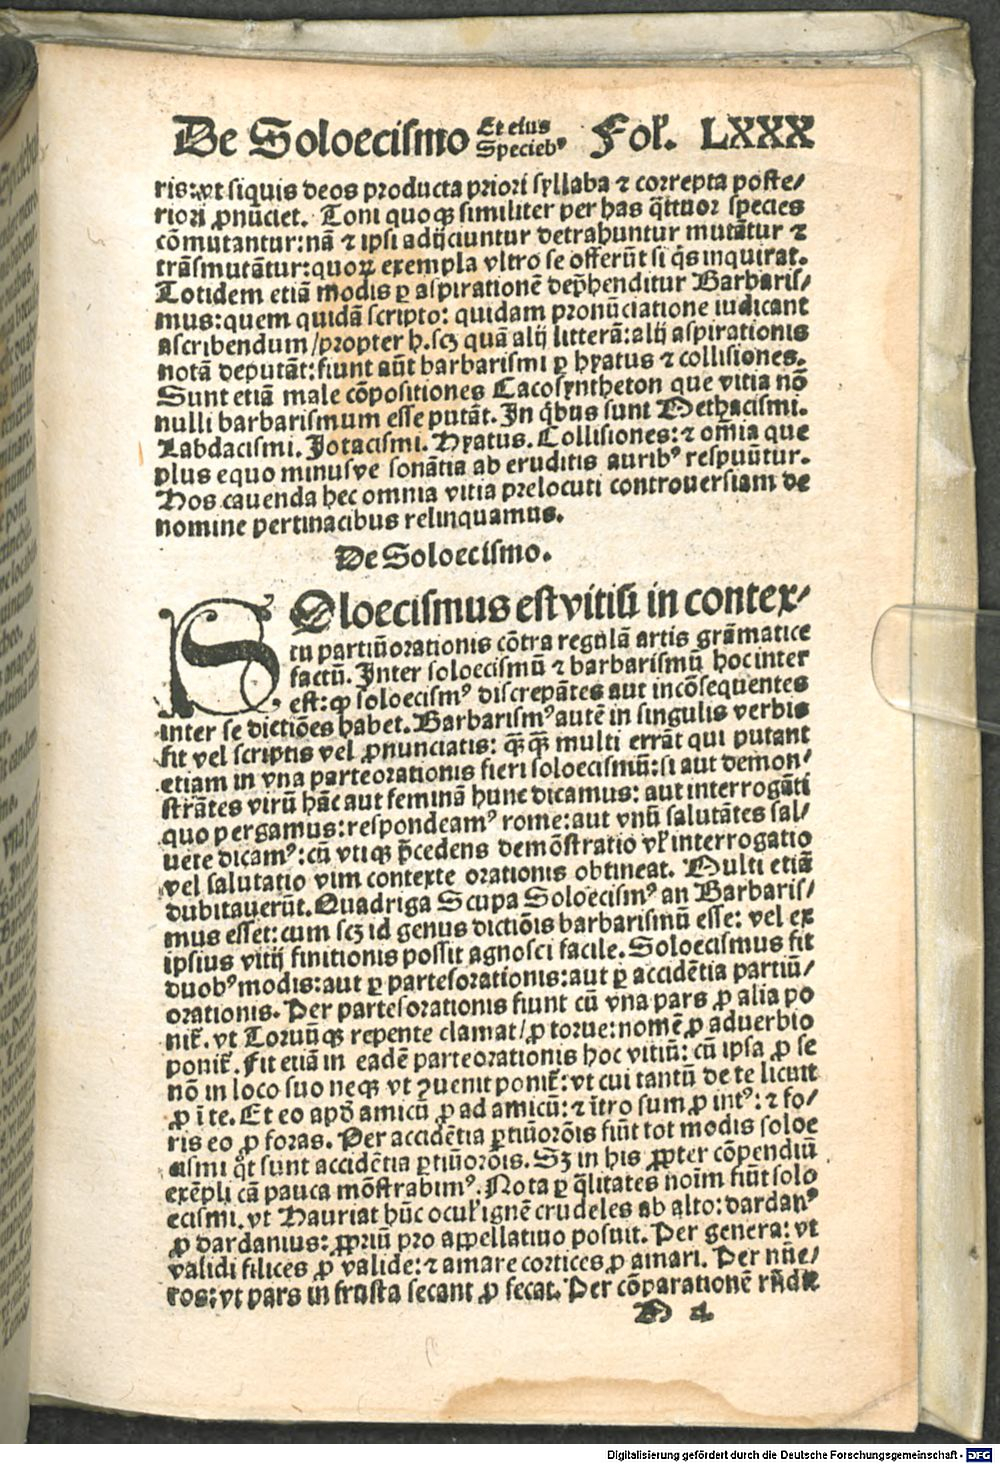 De Soloecismo Et eius Specieb⁹ Fol. LXXX
ris: vt siquis deos producta priori syllaba ⁊ correpta poste/
riori ꝓnūciet. Toni quoqꝫ similiter per has q̄ttuor species
cōmutantur: nā ⁊ ipsi adijciuntur detrahuntur mutātur ⁊
trāsmutātur: quoꝝ exempla vltro se offerūt si q̄s inquirat.
Totidem etiā modis ꝑ aspirationē dep̄henditur Barbaris/
mus: quem quidā scripto: quidam pronūciatione iudicant
ascribendum/propter h. scꝫ quā alij litterā: alij aspirationis
notā deputāt: fiunt aūt barbarismi ꝑ hyatus ⁊ collisiones.
Sunt etiā male cōpositiones Cacosyntheton que vitia nō
nulli barbarismum esse putāt. In q̄bus sunt Methacismi.
Labdacismi. Jotacismi. Hyatus. Collisiones: ⁊ om̄ia que
plus equo minusve sonātia ab eruditis aurib⁹ respuūtur.
Nos cauenda hec omnia vitia prelocuti controuersiam de
nomine pertinacibus relinquamus.
De Soloecismo.
SOloecismus est vitiū in contex/
tu partiū orationis cōtra regulā artis grāmatice
factū. Inter soloecismū ⁊ barbarismū hoc inter
est: ꝙ soloecism⁹ discrepātes aut incōsequentes
inter se dictiōes habet. Barbarism⁹ autē in singulis verbis
fit vel scriptis vel ꝓnunciatis: q̄ꝫq̄ꝫ multi errāt qui putant
etiam in vna parte orationis fieri soloecismū: si aut demon/
strātes virū hāc aut feminā hunc dicamus: aut interrogāti
quo pergamus: respondeam⁹ rome: aut vnū salutātes sal/
uete dicam⁹: cū vtiqꝫ p̄cedens demōstratio vl̓ interrogatio
vel salutatio vim contexte orationis obtineat. Multi etiā
dubitauerūt. Quadriga Scupa Soloecism⁹ an Barbaris/
mus esset: cum scꝫ id genus dictiōis barbarismū esse: vel ex
ipsius vitij finitionis possit agnosci facile. Soloecismus fit
duob⁹ modis: aut ꝑ partes orationis: aut ꝑ accidētia partiū/
orationis. Per partes orationis fiunt cū vna pars ꝓ alia po
nit̓. vt Toruūqꝫ repente clamat/ꝓ torue: nomē ꝓ aduerbio
ponit̓. Fit etiā in eadē parte orationis hoc vitiū: cū ipsa ꝓ se
nō in loco suo neqꝫ vt ↄuenit ponit̓: vt cui tantū de te licuit
ꝓ ī te. Et eo apd̓ amicū ꝓ ad amicū: ⁊ ītro sum ꝓ int⁹: ⁊ fo/
ris eo ꝓ foras. Per accidētia ꝑtiū orōis fiūt tot modis soloe
cismi q̄t sunt accidētia ꝑtiū orōis. Sꝫ in his ꝓpter cōpendiū
exēpli cā pauca mōstrabim⁹. Nota ꝑ q̄litates noīm fiūt solo
ecismi. vt Hauriat hūc ocul̓ ignē crudeles ab alto: dardan⁹
ꝓ dardanius: ꝓpriū pro appellatiuo posuit. Per genera: vt
validi silices ꝓ valide: ⁊ amare cortices ꝓ amari. Per nūe/
ros: vt pars in frusta secant ꝓ secat. Per cōparationē